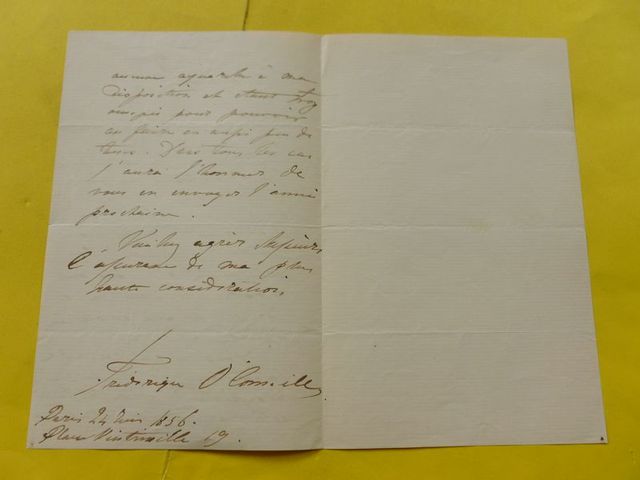 aucune aquarelle à ma
disposition et étant trop
pour pouvoir
en faire en aussi peu de
tems. Dans tous les cas
j'aurai l'honneur de
vous en envoyer l'année
prochaine.
Veuillez agréer Messieurs
l'assurance de ma plus
haute considération
Frédérique O'Connell
Paris 24 1856.
Place Vintimille 19.